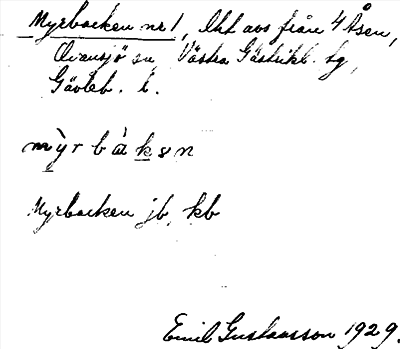 Myrbacken nr 1, lht avs från 4 Åsen,
Ovansjö sn, Västra Gästrikl. tg,
Gävleb. l.
mỳrbàkən
Myrbacken jb, kb
Emil Gustavsson 1929.